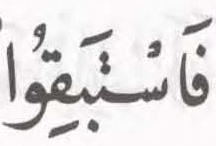 فَاسْتَبَقُوا